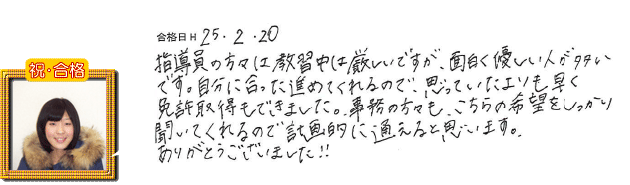 合格日 H 25.2.20
祝・合格
指導員の方々は教習中は厳しいですが、面白く優しい人が多い
です。自分に合った進めてくれるので、思っていたよりも早く
免許取得もできました。事務の方々も、こちらの希望をしっかり
聞いてくれるので計画的に通えると思います。
ありがとうございました!!